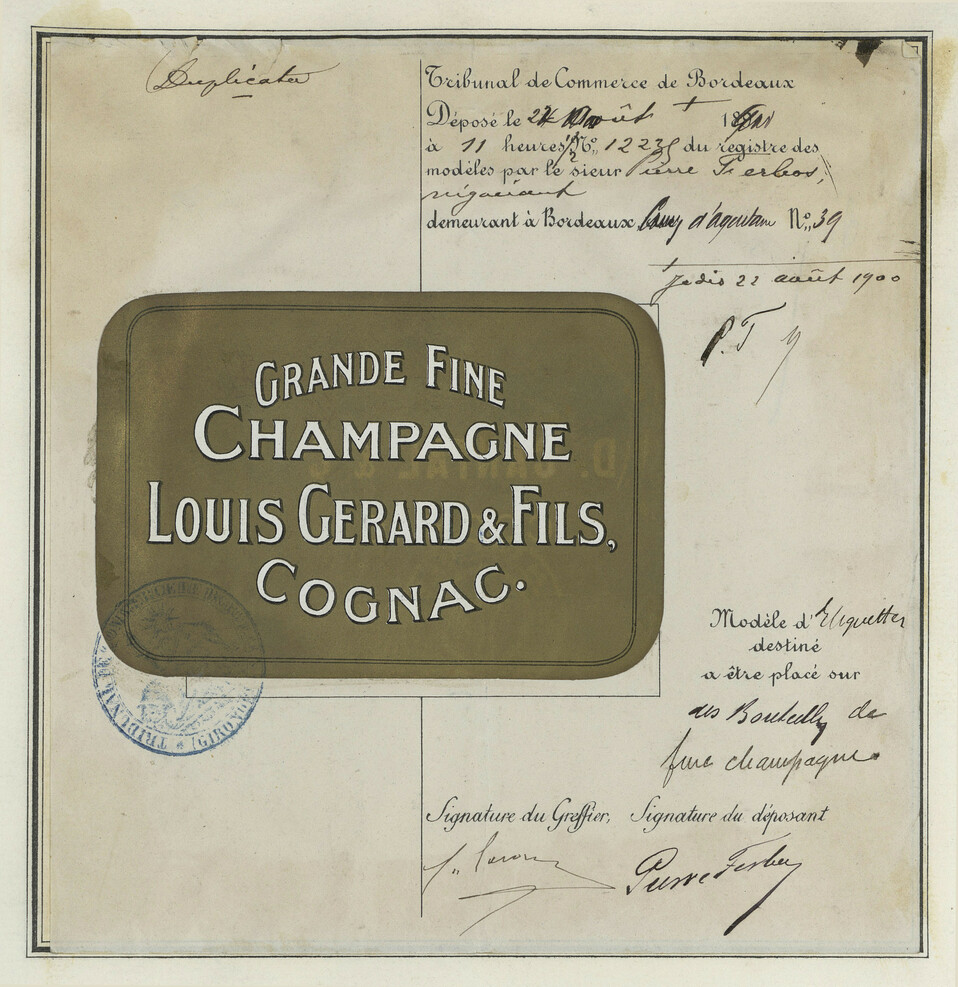 Duplicata
Tribunal de Commerce de Bordeaux
Déposé le 22 Août
à 11 heures ½ No. 12235 du registre des
modèles par le sieur Pierre Ferbos,
négociant
demeurant à Bordeaux No. 39
Jodis 22 août 1900
P. F
GRANDE FINE
CHAMPAGNE
LOUIS GERARD & FILS,
COGNAC.
Modèle d'Etiquettes
destiné
a être placé sur
des Bouteilles de
fine champagne
Signature du Greffier, Signature du déposant
Pierre Ferbos
TRIBUNAL DE COMMERCE DE BORDEAUX * (GIRONDE)